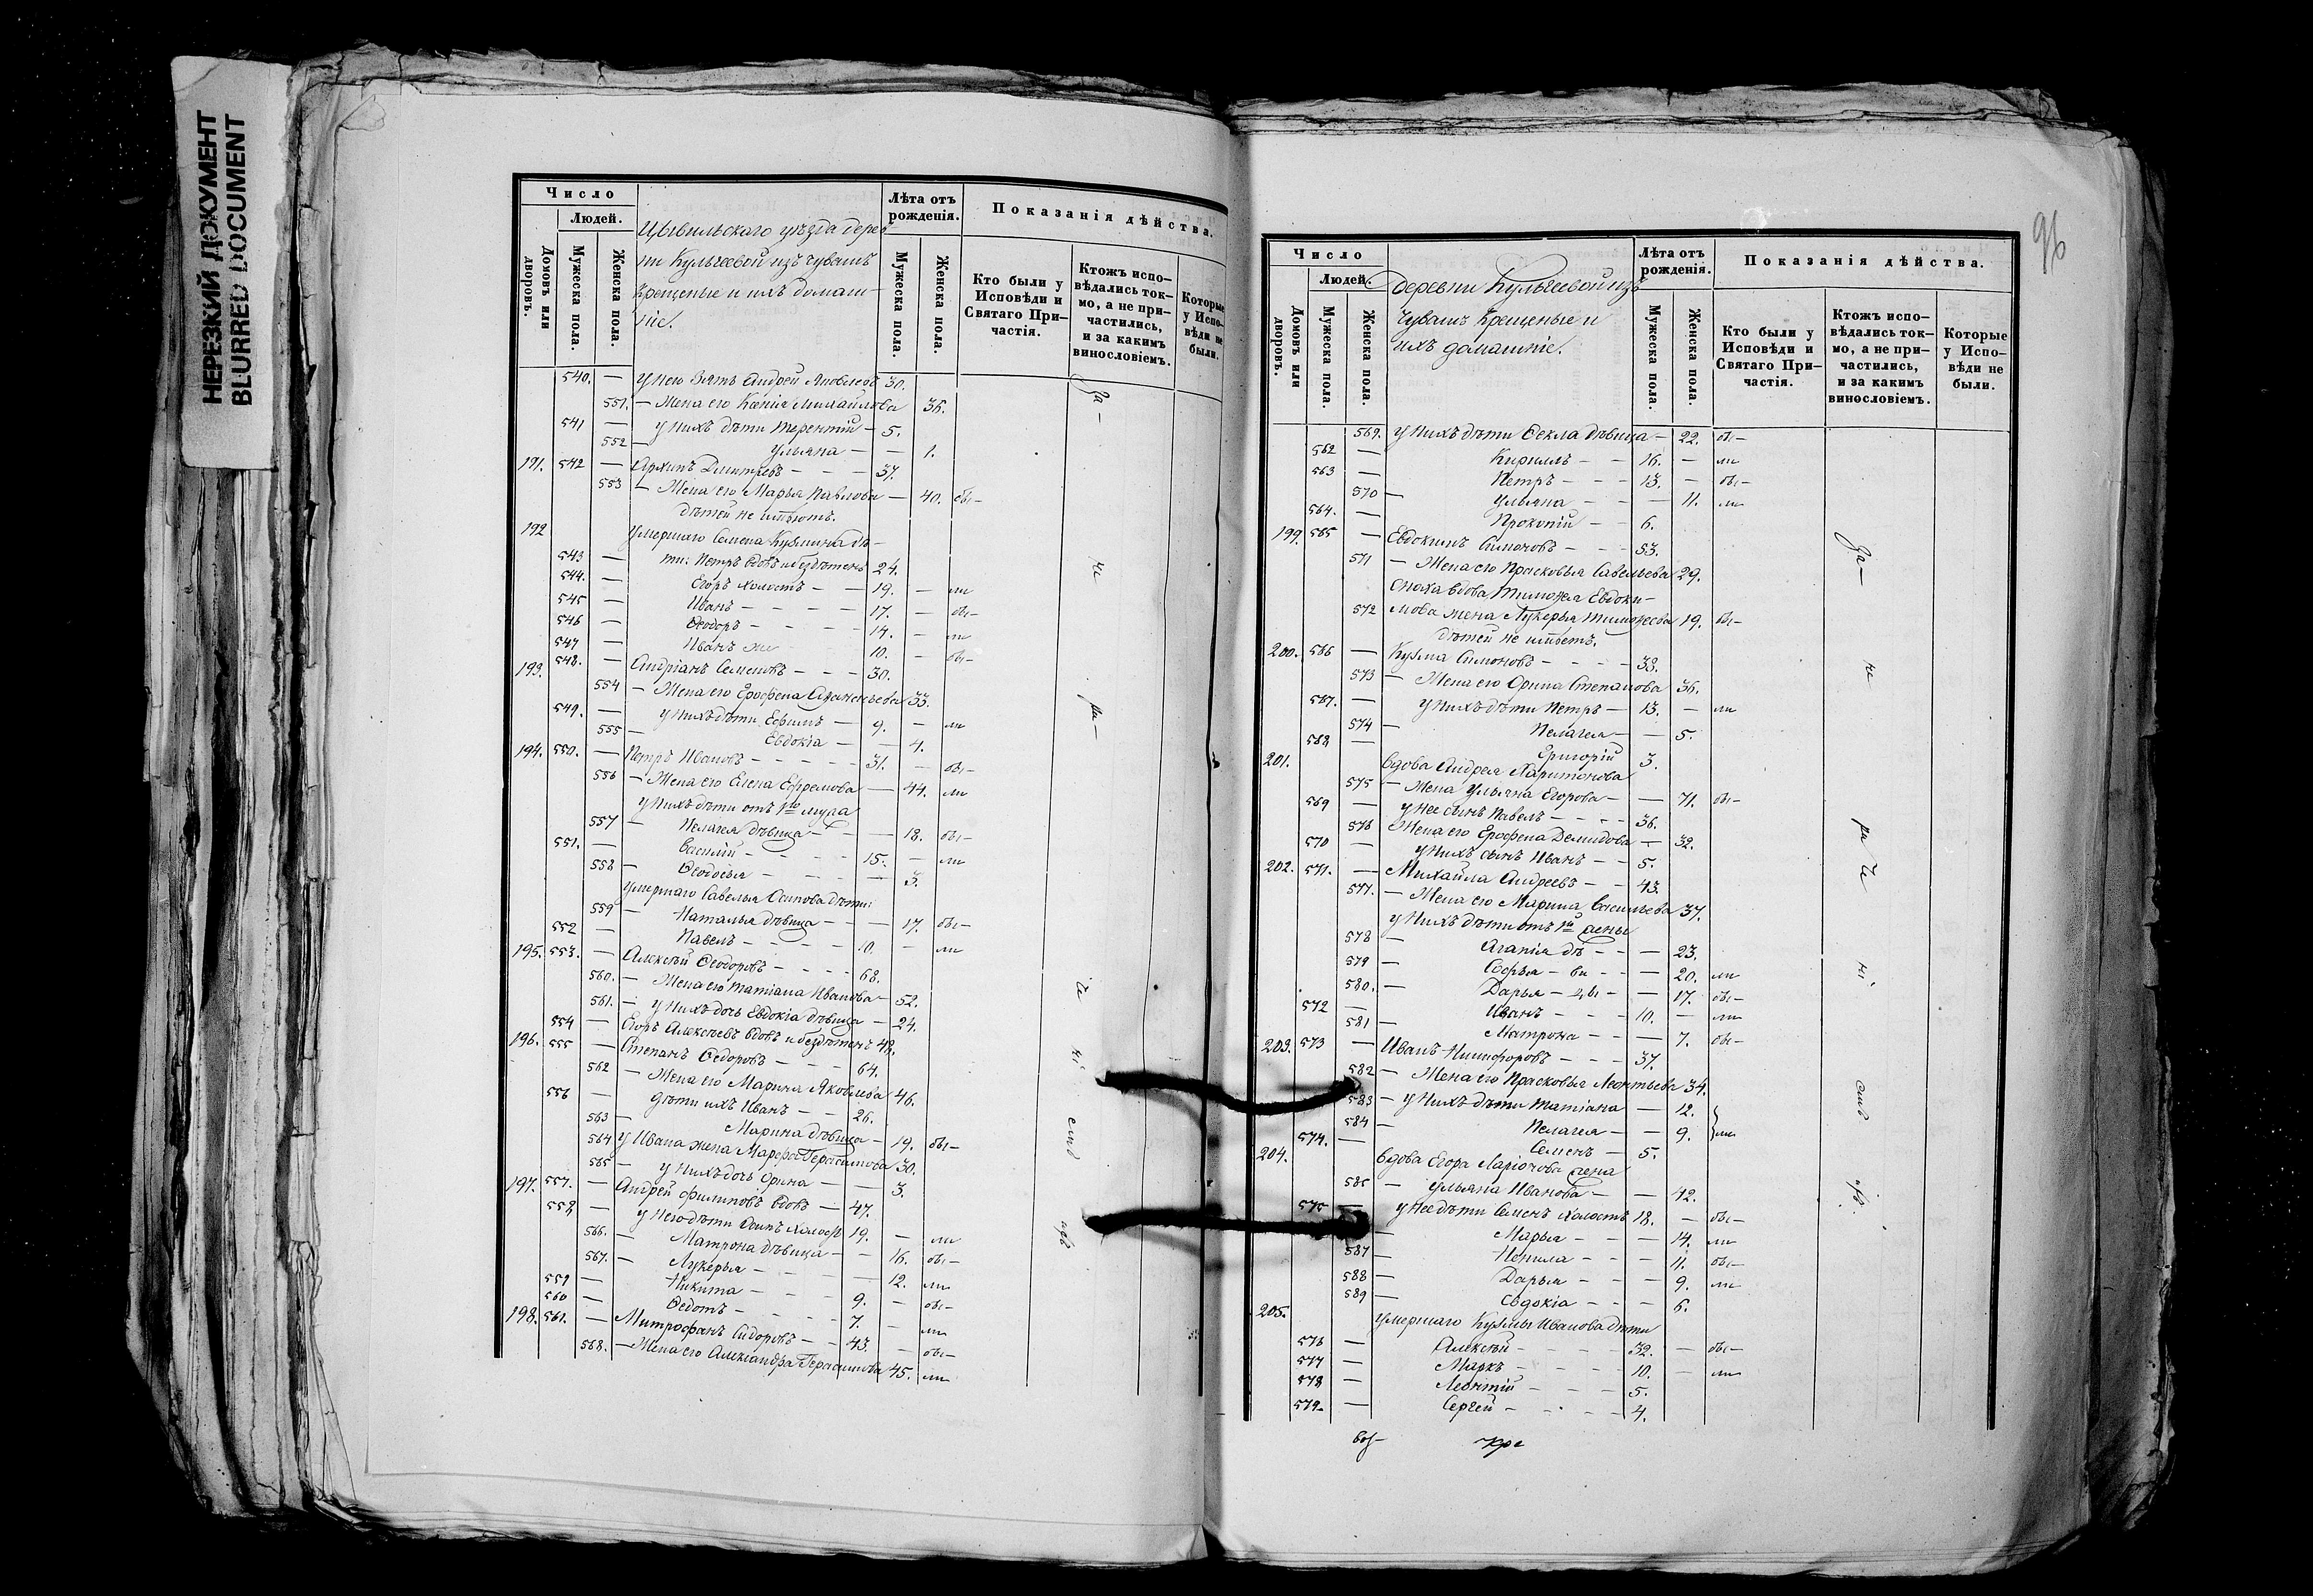 НЕРЕЗКИЙ ДОКУМЕНТ
BLURRED DOCUMENT
Число
Людей.
Домовъ или дворовъ.
Мужеска пола.
Женска пола.
Цывильскаго уѣзда дерев-
ни Кульгеевой изъ чувашъ
крещеные и ихъ домаш-
ніе.
Лѣта отъ рожденія.
Мужеска пола.
Женска пола.
Показанія дѣйства.
Кто были у Исповѣди и Святаго При-частія.
Ктожъ испо-вѣдались ток-мо, а не при-частились, и за какимъ винословіемъ.
Которые у Испо-вѣди не были.
540. — У него зять Андрей Яковлевъ 30.
551. — Жена его Ксенія Михайлова 36.
541 — У нихъ дѣти Терентій — 5.
552 — Ульяна — — 1.
191. 542 — Архипъ Дмитріевъ — — — 37.
553 — Жена его Марья Павлова — 40. обы-
дѣтей не имѣютъ.
192 Умершаго Семена Кузмина дѣ-
543 — ти: Петръ вдовъ и бездѣтенъ 24.
544. — Егоръ холостъ — — 19. — ли
545 — Иванъ — — — — 17. — обы-
546 — Ѳеодоръ — — — — 14. — ли
547 — Иванъ же 10. — обы-
193. 548. — Андріанъ Семеновъ — — — 30.
554 — Жена его Ерофена Аѳанасьева 33.
549. — У нихъ дѣти Ефимъ — 9. — ли
555 — Евдокія — — 4.
194. 550. — Петръ Ивановъ — — — — — 31. — обы-
556 — Жена его Елена Ефремова — 44. ли
У нихъ дѣти отъ 1го мужа
557 — Пелагея дѣвица — — — 18. обы-
551. — Василій — — — — 15. — ли
558 — Ѳеодосья — — — — 3.
Умершаго Савелья Осипова дѣти:
559 — Наталья дѣвица — — — 17. обы-
552 — Павелъ — — — — 10. — ли
195. 553. — Алексѣй Ѳеодоровъ — — — — 68.
560. — Жена его Татіана Иванова — 52.
561. — У нихъ дочь Евдокія дѣвица — 24.
554 — Егоръ Алексѣевъ вдовъ и бездѣтенъ 42.
196. 555 — Степанъ Ѳедоровъ — — — 64.
562 — Жена его Марина Яковлева 46.
556 — Дѣти ихъ Иванъ — — 26.
563 — Марина дѣвица — 19. обы-
564 У Ивана жена Марфа Герасимова 30.
565 — У нихъ дочь Ирина — — 3.
197. 557. — Андрей Филиповъ вдовъ — 47.
558 — У него дѣти Осипъ холост 19. — ли
566. — Матрона дѣвица — — 16. обы-
567. — Лукерья — — — — 12. ли
559 — Никита — — — 9. — обы-
560 — Ѳедотъ — — — — 7. — ли
198. 561. — Митрофанъ Сидоровъ — — 43. — обы-
568. — Жена его Александра Герасимова 45. ли
96
Число
Людей.
Домовъ или дворовъ.
Мужеска пола.
Женска пола.
Деревни Кульгеевой изъ
чувашъ крещеные и
ихъ домашніе.
Лѣта отъ рожденія.
Мужеска пола.
Женска пола.
Показанія дѣйства.
Кто были у Исповѣди и Святаго При-частія.
Ктожъ испо-вѣдались ток-мо, а не при-частились, и за какимъ винословіемъ.
Которые у Испо-вѣди не были.
569. У нихъ дѣти Ѳекла дѣвица — 22. обы-
562 — Кириллъ — — 16. — ли
563 — Петръ — — — 13. — обы-
570 — Ульяна — — — 11. ли
564. — Прокопій — — 6.
199. 565 — Евдокимъ Симоновъ — — — 53.
571 — Жена его Прасковья Савельева 29.
Сноха вдова Тимоѳея Евдоки-
572 мова жена Лукерья Тимоѳеева 19. обы-
дѣтей не имѣетъ.
200. 566 — Кузма Симоновъ — — — — 38.
573 — Жена его Орина Степанова 36.
567. — У нихъ дѣти Петръ — 13. — ли
574 — Пелагея — — 5.
568 — Григорій 3.
201. Вдова Андрея Харитонова
575 — Жена Ульяна Егорова — — 71. обы-
569 — У нее сынъ Павелъ — — — — 36.
576 Жена его Ерофена Демидова — 32.
570 — У нихъ сынъ Иванъ — — 5.
202. 571. — Михайла Андреевъ — — 43.
577. — Жена его Марина Васильева 37.
У нихъ дѣти отъ 1й жены
578 — Агапія дѣ — — — 23.
579 — Софья — ви — — — 20. ли
580. — Дарья — цы — — 17. обы-
572 — Иванъ — — — 10. — ли
581 — Матрона — — — 7. обы-
203. 573 — Иванъ Никифоровъ — — — 37.
582 — Жена его Прасковья Леонтьева 34.
583 — У нихъ дѣти Татіана — 12.
584 — Пелагея — — 9. } ли
574. — Семенъ — 5.
204. Вдова Егора Ларіонова жена
585 — Ульяна Иванова — — 42.
575 — У нее дѣти Семенъ холостъ 18. — обы-
— Марья — — — 14. ли
587 — Ненила — — — 11. обы-
588 — Дарья — — — 9. ли
589 — Евдокія — — — 6.
205. Умершаго Кузмы Иванова дѣти
576 — Алексѣй — — — — 32. — обы-
577 — Маркъ — — — — 10. — ли
578 — Леонтій — — — 5.
579 — Сергей — — — — 4.